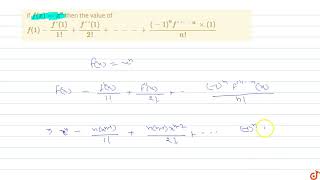 If f(x) = xⁿ then the value of
f(1) - f'(1)/1! + f''(1)/2! + - - - + (-1)ⁿ f'''...ⁿ × (1)/n!
f(x) = xⁿ
f(x) - f'(x)/1! + f''(x)/2! + - (-1)ⁿ f'''...ⁿ(x)/n!
⇒ xⁿ - + + ... (-1)ⁿ